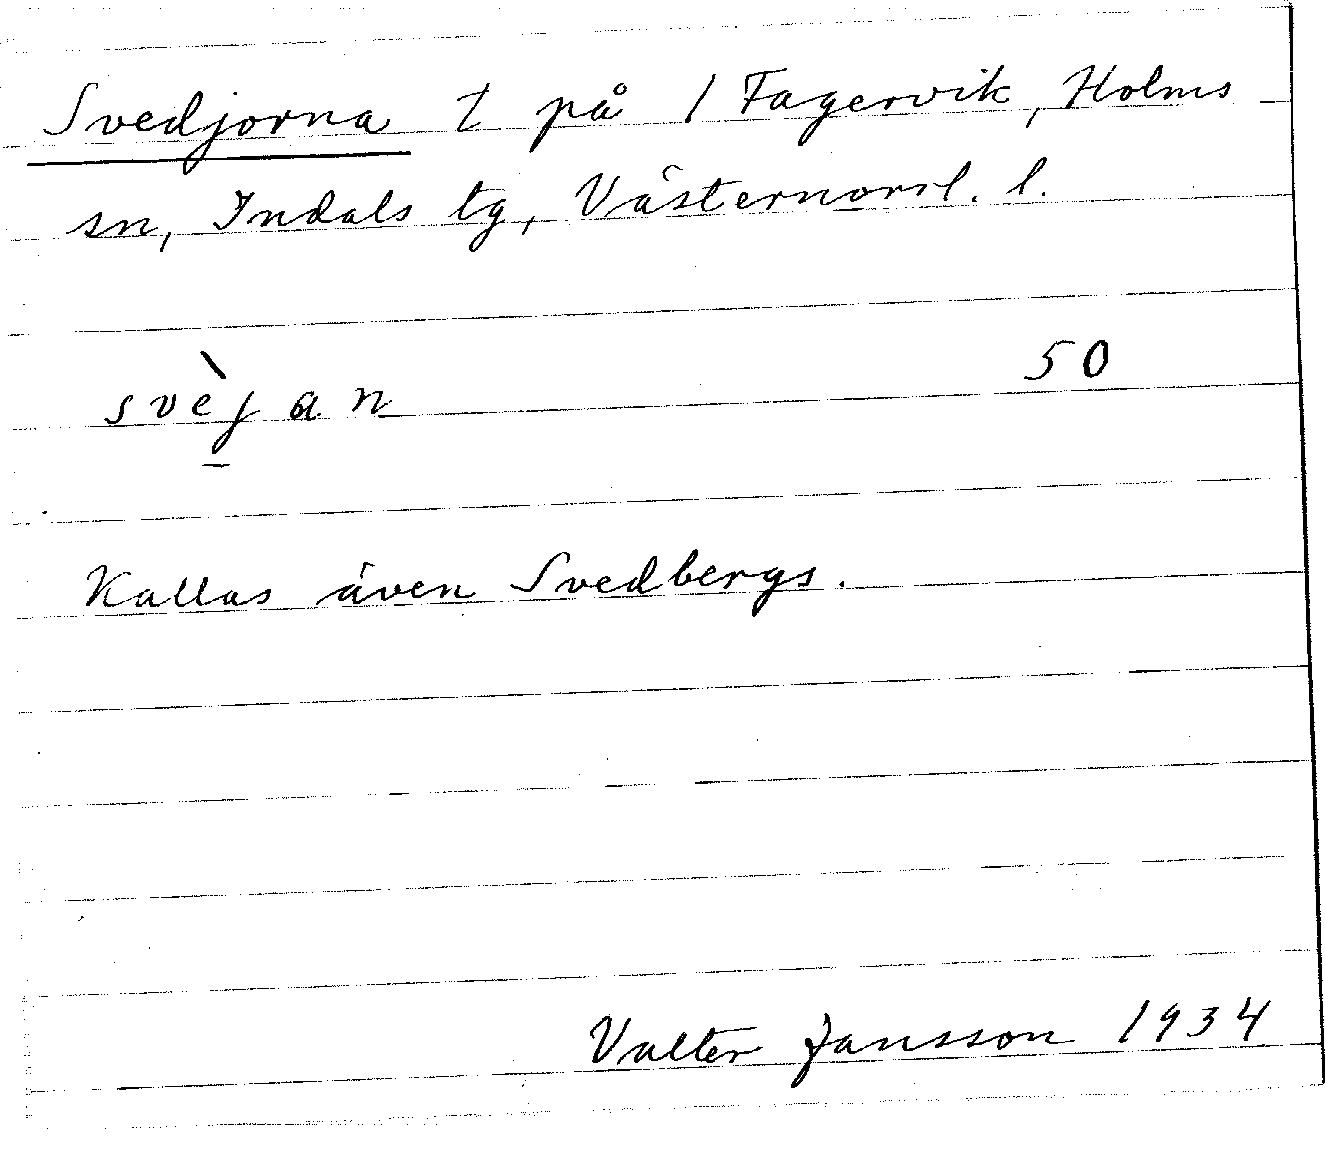 Svedjorna t på 1 Fagervik, Holms
sn, Indals tg, Västernorrl. l.
svèjan 50
Kallas även Svedbergs.
Valter Jansson 1934